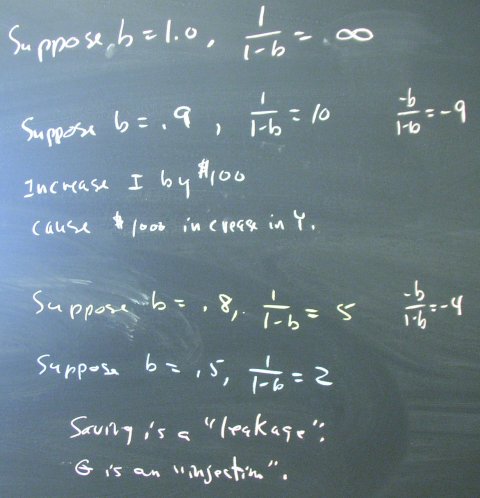 Suppose, b = 1.0, 1/(1-b) = ∞
Suppose b = .9, 1/(1-b) = 10 -b/(1-b) = -9
Increase I by $100
cause $1000 increase in Y.
Suppose b = .8, 1/(1-b) = 5 -b/(1-b) = -4
Suppose b = .5, 1/(1-b) = 2
Saving is a "leakage".
G is an "injection".